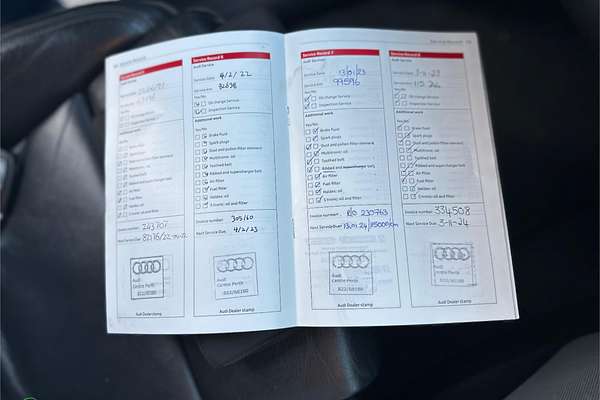 Service Record
Audi Service
Yes/No
Additional work
Yes/No
Invoice number 243701
Next Service Due
Audi
Centre Perth
822/68180
Audi Dealer stamp
Service Record 6
Audi Service
Service Date 4/2/22
Service km
Yes/No
Oil change Service
Inspection Service
Additional work
Yes/No
Brake fluid
Spark plugs
Dust and pollen filter element
Multitronic oil
Toothed belt
Ribbed and supercharger belt
Air filter
Fuel filter
Haldex oil
S tronic oil and filter
Invoice number 305160
Next Service Due 4/2/23
Audi
Centre Perth
822/68180
Audi Dealer stamp
Service Record 7
Audi Service
Service Date 13/01/23
Service km 99596
Yes/No
Oil change Service
Inspection Service
Additional work
Yes/No
Brake fluid
Spark plugs
Dust and pollen filter element
Multitronic oil
Toothed belt
Ribbed and supercharger belt
Air filter
Fuel filter
Haldex oil
S tronic oil and filter
Invoice number R/O 230763
Next Service Due 13.01.24/115000km
Audi
Centre Perth
822/68180
Audi Dealer stamp
Service Record 8
Audi Service
Service Date
Service km
Yes/No
Oil change Service
Inspection Service
Additional work
Yes/No
Brake fluid
Spark plugs
Dust and pollen filter element
Multitronic oil
Toothed belt
Ribbed and supercharger belt
Air filter
Fuel filter
Haldex oil
S tronic oil and filter
Invoice number 334508
Next Service Due 3-11-24
Audi
Centre Perth
822/68180
Audi Dealer stamp